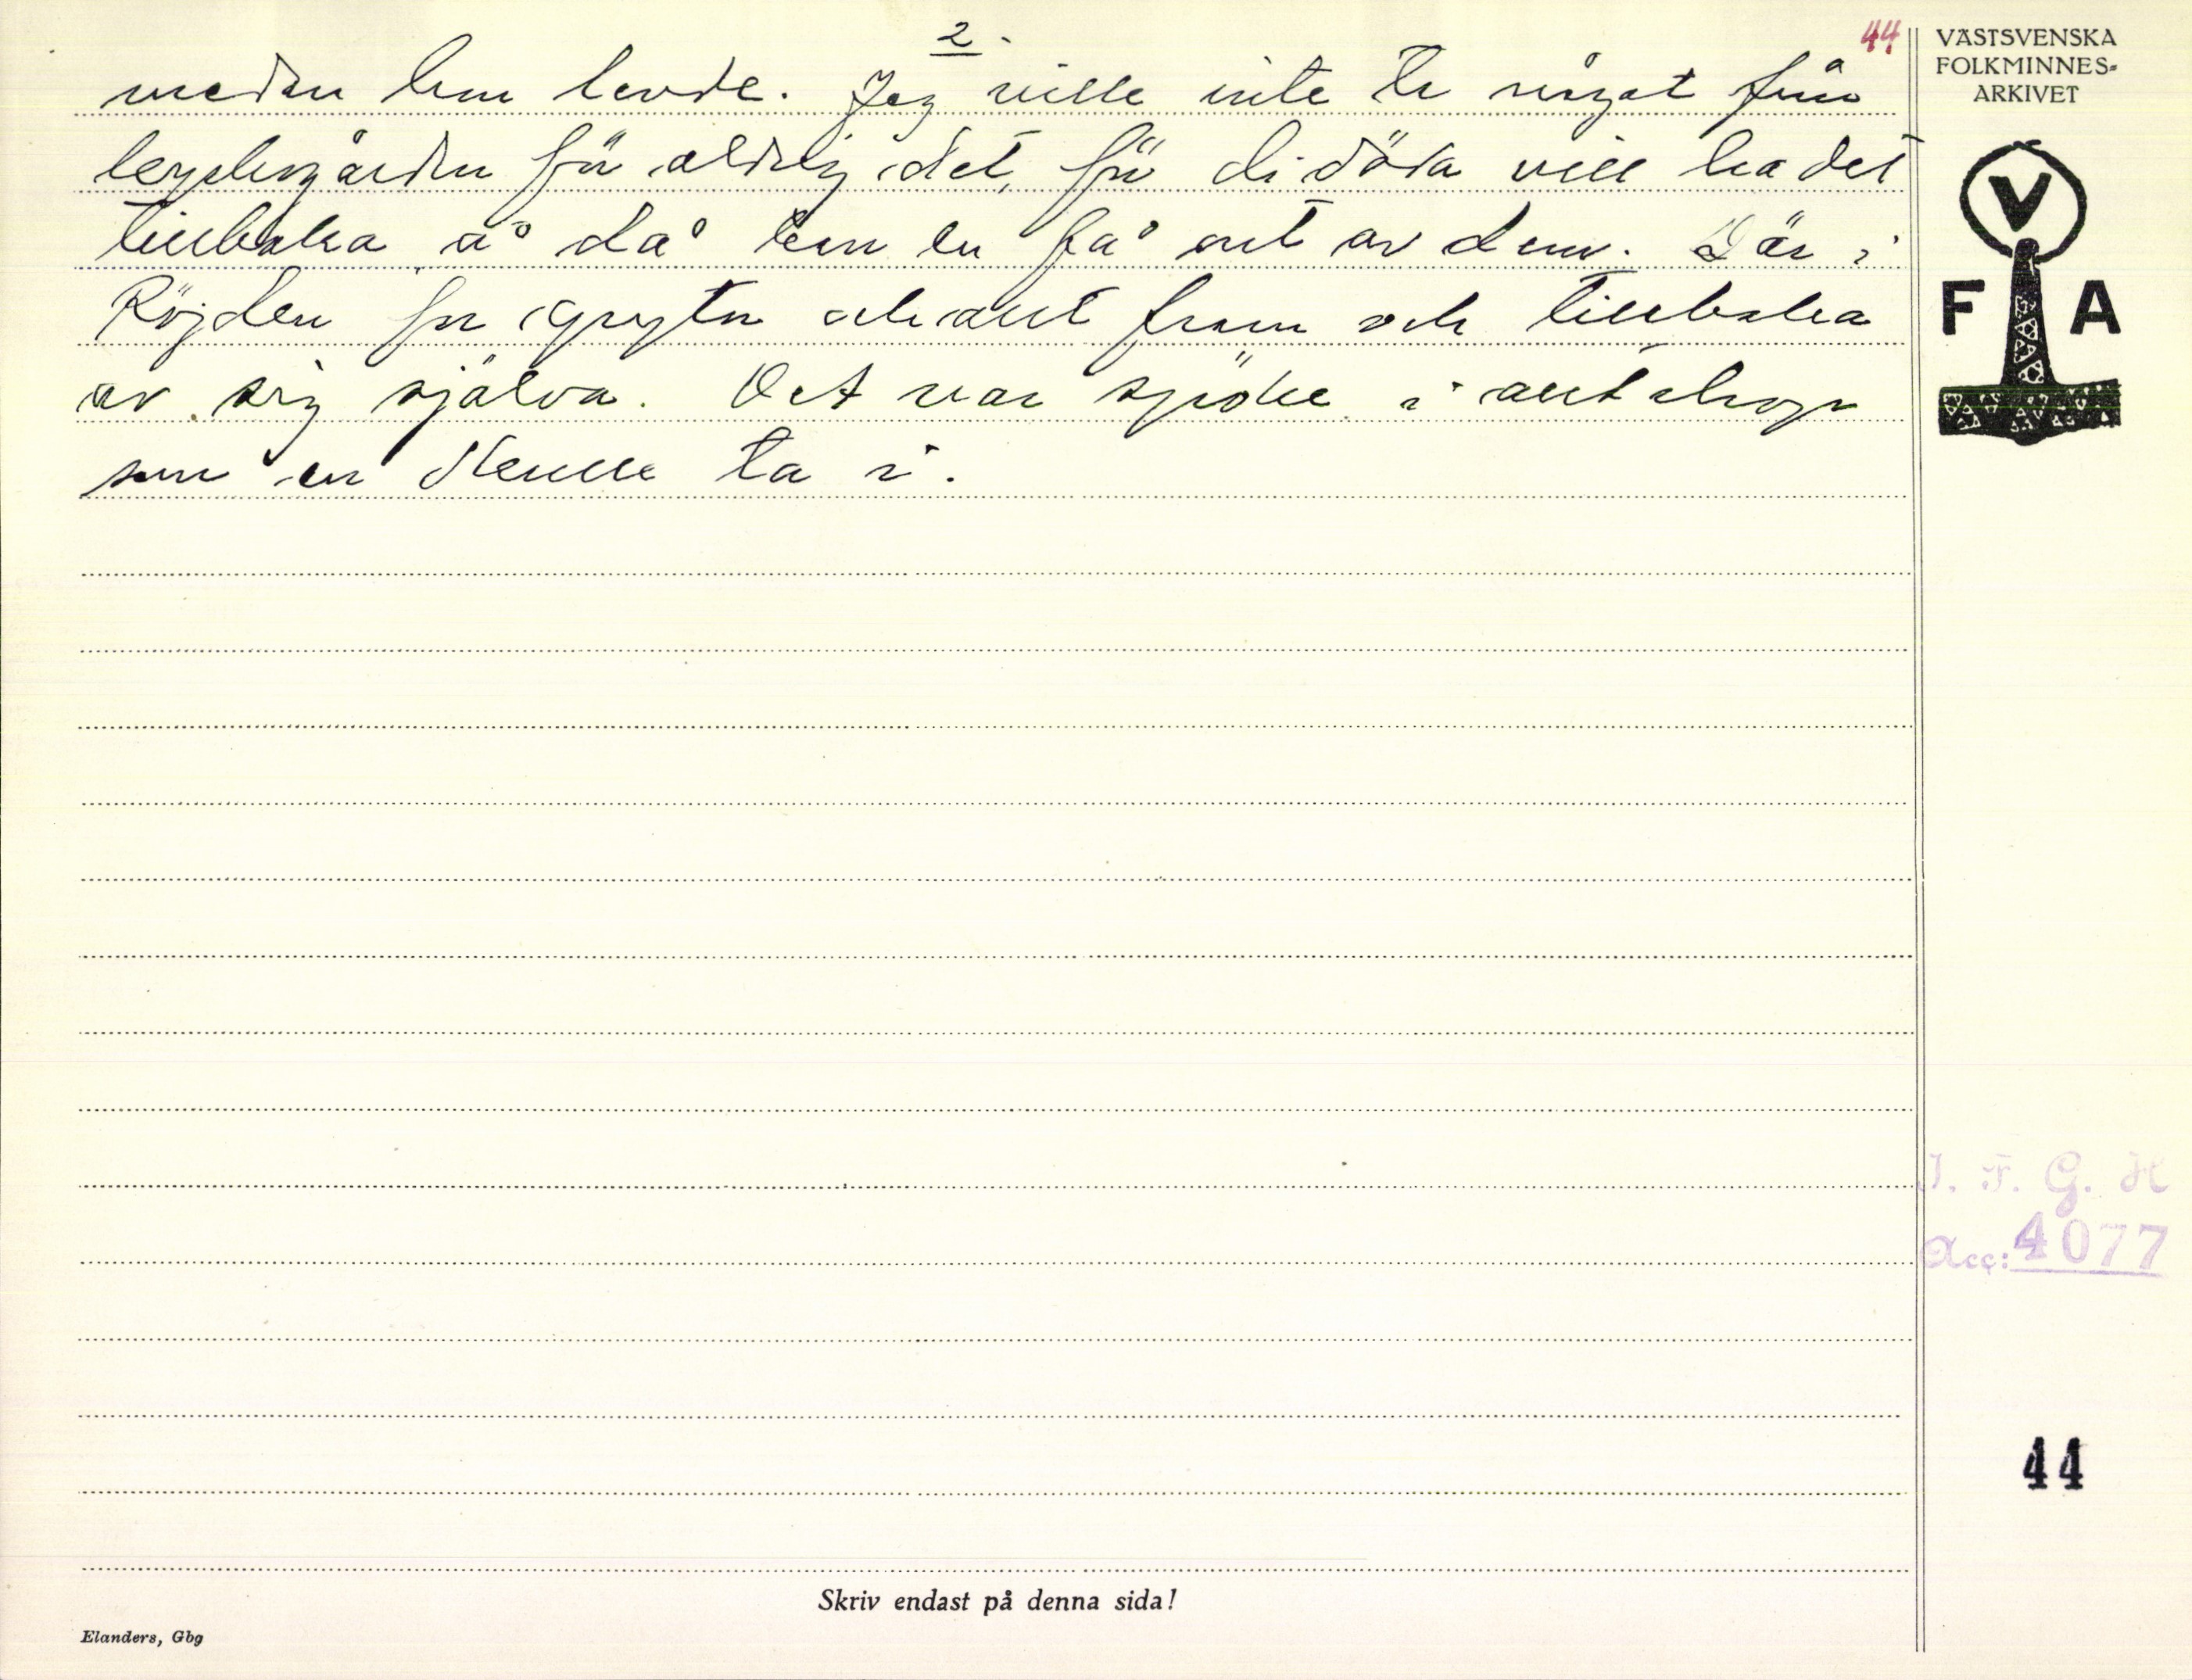 2.
44
medan hon levde. Jag ville inte ta något från
kyrkogården för aldrig det, för di döda vill ha det
tillbaka å då kan en få ont av dem. Där i
Röjden for grytor och allt fram och tillbaka
av sig själva. Det var spöke i allt ihop
som en skulle ta i.
VÄSTSVENSKA
FOLKMINNES-
ARKIVET
V
F A
I. F. G. H
Acc: 4077
44
Skriv endast på denna sida!
Elanders, Gbg